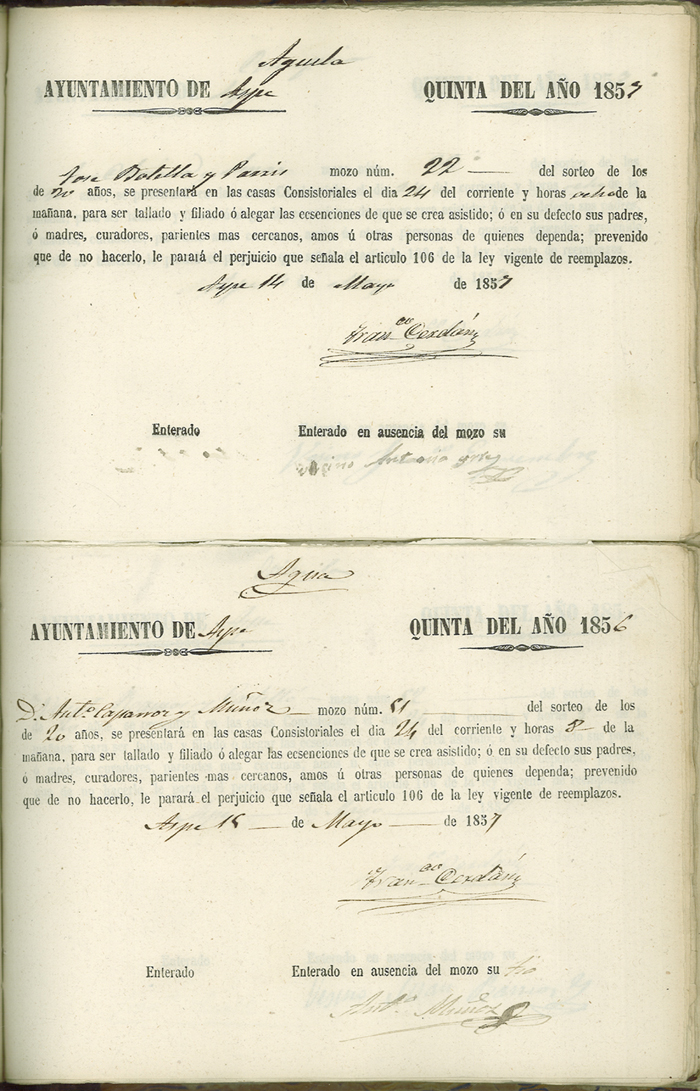 Aguela
AYUNTAMIENTO DE Aspe QUINTA DEL AÑO 1857
Jose Botella y Pavia mozo núm. 22 — del sorteo de los
de 20 años, se presentará en las casas Consistoriales el dia 24 del corriente y horas ocho de la
mañana, para ser tallado y filiado ó alegar las ecsenciones de que se crea asistido; ó en su defecto sus padres,
ó madres, curadores, parientes mas cercanos, amos ú otras personas de quienes dependa; prevenido
que de no hacerlo, le parará el perjuicio que señala el articulo 106 de la ley vigente de reemplazos.
Aspe 14 de Mayo de 1857
Fran.co Cerdán
Enterado Enterado en ausencia del mozo su
vecino Antonio
Agua
AYUNTAMIENTO DE Aspe QUINTA DEL AÑO 1856
D. Ant.o Caparros y Muñoz — mozo núm. 51 — del sorteo de los
de 20 años, se presentará en las casas Consistoriales el dia 24 del corriente y horas 8 — de la
mañana, para ser tallado y filiado ó alegar las ecsenciones de que se crea asistido; ó en su defecto sus padres,
ó madres, curadores, parientes mas cercanos, amos ú otras personas de quienes dependa; prevenido
que de no hacerlo, le parará el perjuicio que señala el articulo 106 de la ley vigente de reemplazos.
Aspe 15 — de Mayo — de 1857
Fran.co Cerdán
Enterado Enterado en ausencia del mozo su tio
Ant.o Muñoz